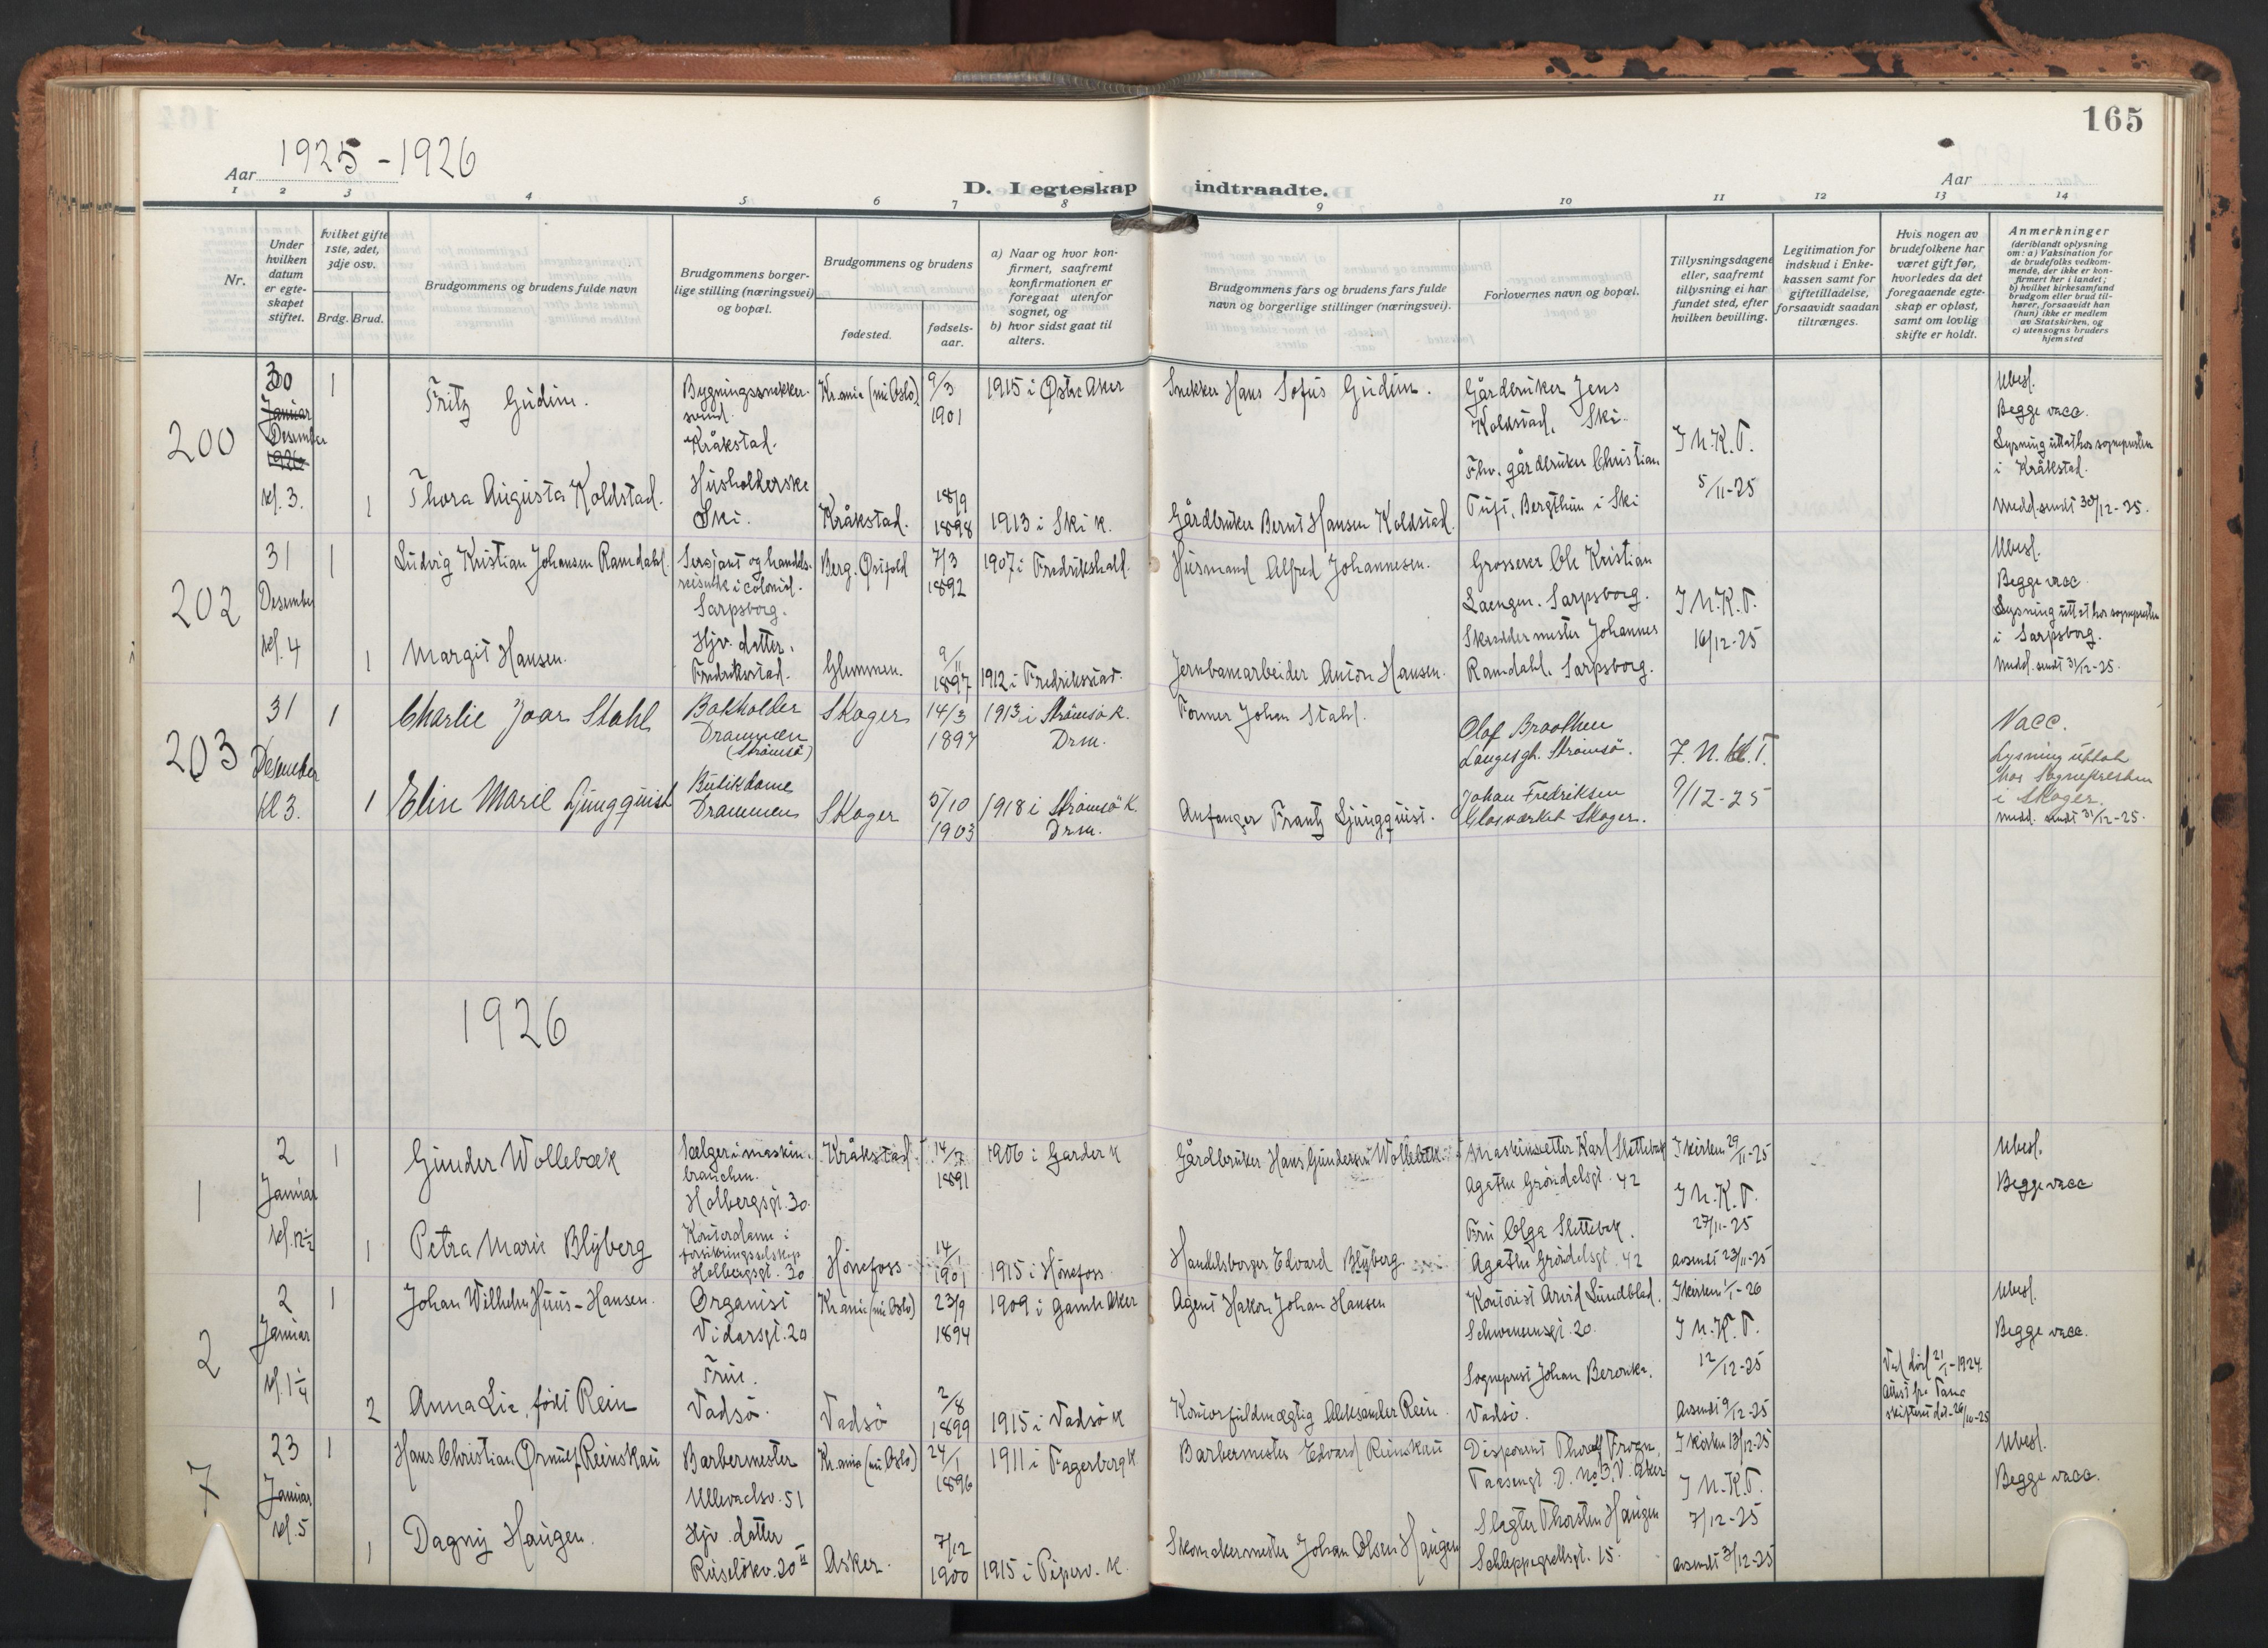 165
Aar 1925-1926
D. I egteskap indtraadte.
Aar
1 2 3 4 5 6 7 8 9 10 11 12 13 14
Nr.
Under hvilken datum er egteskapet stiftet.
Hvilket gifte 1ste, 2det, 3dje osv.
Brdg. Brud.
Brudgommens og brudens fulde navn
Brudgommens borgerlige stilling (næringsvei) og bopæl.
Brudgommens og brudens
fødested.
fødselsaar.
a) Naar og hvor konfirmert, saafremt konfirmationen er foregaat utenfor sognet, og
b) hvor sidst gaat til alters.
Brudgommens fars og brudens fars fulde navn og borgerlige stillinger (næringsvei).
Forlovernes navn og bopæl.
Tillysningsdagene eller, saafremt tillysning ei har fundet sted, efter hvilken bevilling.
Legitimation for indskud i Enkekassen samt for giftetilladelse, forsaavidt saadan tiltrænges.
Hvis nogen av brudefolkene har været gift før, hvorledes da det foregaaende egteskap er opløst, samt om lovlig skifte er holdt.
Anmerkninger
(deriblandt oplysning om: a) Vaksination for de brudefolks vedkommende, der ikke er konfirmert her i landet;
b) hvilket kirkesamfund brudgom eller brud tilhører, forsaavidt han (hun) ikke er medlem av Statskirken, og
c) utensogns bruders hjemsted
200
30
Januar
Desember
1926
kl. 3.
1
Fritz Gudim.
Bygningssnekkersvend.
Kråkstad.
Kr.ania (nu Oslo)
9/3 1901
1915 i Østre Aker
Snekker Hans Sofus Gudim.
Gårdbruker Jens Koldstad, Ski.
Fhv. gårdbruker Christian Tufi, Bergthun i Ski
I N.K.T.
5/11-25
Ubesl.
Begge vacc.
Lysning uttat hos sognepresten
i Kråkstad.
Medd. sendt 30/12-25.
1
Thora Augusta Koldstad.
Husholderske
Ski.
Kråkstad.
18/9 1898
1913 i Ski k.
Gårdbruker Bernt Hansen Koldstad.
202
31
Desember
kl. 4
1
Ludvig Kristian Johansen Ramdahl.
Sersjant og handelsreisende i colonial.
Sarpsborg.
Berg. Østfold
7/3 1892
1907 i Fredrikshald.
Husmand Alfred Johannesen.
Grosserer Ole Kristian
Laengen. Sarpsborg.
Skreddermester Johannes
Ramdahl. Sarpsborg.
I N.K.T.
16/12-25
Ubesl.
Begge vacc
Lysning uttat hos sognepresten
i Sarpsborg.
Medd. sendt 31/12-25.
1
Margit Hansen.
Hjv. datter.
Fredriksstad.
Glemmen.
9/11 1897
1912 i Fredriksstad.
Jernbanearbeider Anton Hansen.
203
31
Desember
kl 3.
1
Charlie Joar Stahl
Bokholder
Drammen
(Strømsø)
Skoger
14/3 1897
1913 i Strømsø k.
Drm.
Former Johan Stahl.
Olaf Braathen
Langesgt. Strømsø.
Johan Fredriksen
Glasværket Skoger.
I. N. K. T.
9/12-25
Vacc.
Lysning uttat
hos Sognepresten
i Skoger.
Medd. sendt 31/12-25.
1
Elin Marie Ljungquist
Butikdame
Drammen
Skoger
5/10 1903
1918 i Strømsø k.
Drm.
Anfanger Frantz Ljungquist.
1926
1
2
Januar
kl. 12 1/2
1
Gunder Wollebæk
Sælger i maskinbranchen.
Holbergsgt. 30.
Kråkstad.
14/7 1891
1906 i Garder k
Gårdbruker Hans Gundersen Wollebæk.
Maskinsetter Karl Slettebak
Agathe Grøndelsgt. 42
Fru Olga Slettebak.
Agathe Grøndelsgt. 42
I kirken 29/11-25
I N.K.T.
27/11-25
Avsendt 23/11-25
Ubesl.
Begge vacc
1
Petra Marie Blyberg
Kontordame i
forsikringsselskap
Holbergsgt. 30
Hønefoss
14/1 1901
1915 i Hønefoss
Handelsborger Edvard Blyberg
2
2
Januar
kl. 1 1/4
1
Johan Wilhelm Huus-Hansen.
Organist
Vidarsgt. 20
Kr.ania (nu Oslo)
23/9 1894
1909 i Gamle Aker
Agent Hakon Johan Hansen
Kontorist Arvid Lundblad.
Schwensensgt. 20.
Sogneprest Johan Beronka.
Vadsø.
I kirken 1/1-26
I N.K.T.
12/12-25
Avsendt 9/12-25
Ved død 21/1-1924.
Attest fra Tana
skifterett dat. 26/10-25
Ubesl.
Begge vacc.
2
Anna Lie, født Rein
Frue.
Vadsø.
Vadsø
2/8 1899
1915 i Vadsø k
Kontorfuldmægtig Aleksander Rein.
7
23
Januar
kl. 5
1
Hans Christian Ørnulf Reinskau
Barbermester
Ullevaalsv. 51
Kr.ania (nu Oslo)
24/1 1896
1911 i Fagerborg k
Barbermester Edvard Reinskau
Disponent Thoralf Frogn.
Taasengt D. No 3. V. Aker
Slagter Thorsten Haugen
Schleppegrellsgt. 15.
I kirken 13/12-25
I N.K.T.
7/12-25
Avsendt 3/12-25
Ubesl.
Begge vacc.
1
Dagny Haugen.
Hjv. datter
Ruseløkv. 20 II
Asker.
7/12 1900
1915 i Piperv. k.
Skomakermester Johan Olsen Haugen